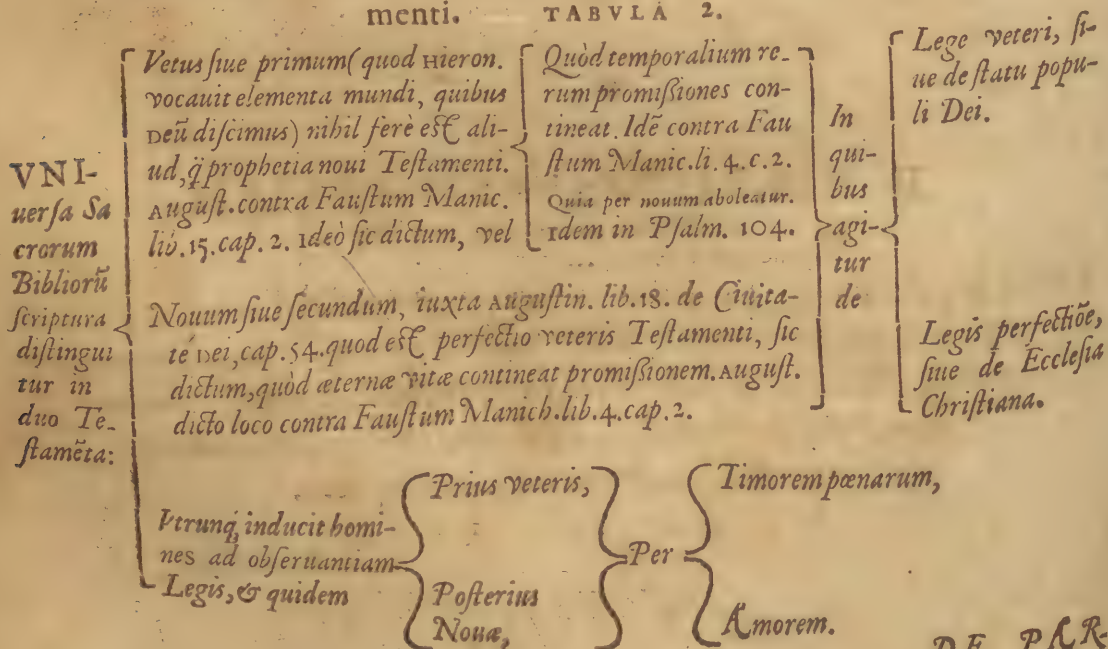 menti. TABVLA 2.
VNI-
uersa Sa
crorum
Bibliorũ
scriptura
distingui
tur in
duo Te-
stamẽta:
Vetus siue primum (quod Hieron.
vocauit elementa mundi, quibus
Deũ discimus) nihil ferè est ali-
ud, q̃ prophetia noui Testamenti.
August. contra Faustum Manic.
lib. 15. cap. 2. Ideò sic dictum, vel
Quòd temporalium re-
rum promissiones con-
tineat. Idẽ contra Fau
stum Manic. li. 4. c. 2.
Quia per nouum aboleatur.
Idem in Psalm. 104.
Nouum siue secundum, iuxta Augustin. lib. 18. de Ciuita-
te Dei, cap. 54. quod est perfectio veteris Testamenti, sic
dictum, quòd æternæ vitæ contineat promissionem. August.
dicto loco contra Faustum Manich. lib. 4. cap. 2.
In
qui-
bus
agi-
tur
de
Lege veteri, si-
ue de statu popu-
li Dei.
Legis perfectiõe,
siue de Ecclesia
Christiana.
Vtrunq; inducit homi-
nes ad obseruantiam
Legis, & quidem
Prius veteris,
Posterius
Nouæ,
Per
Timorem pœnarum,
Amorem.
DE PAR-